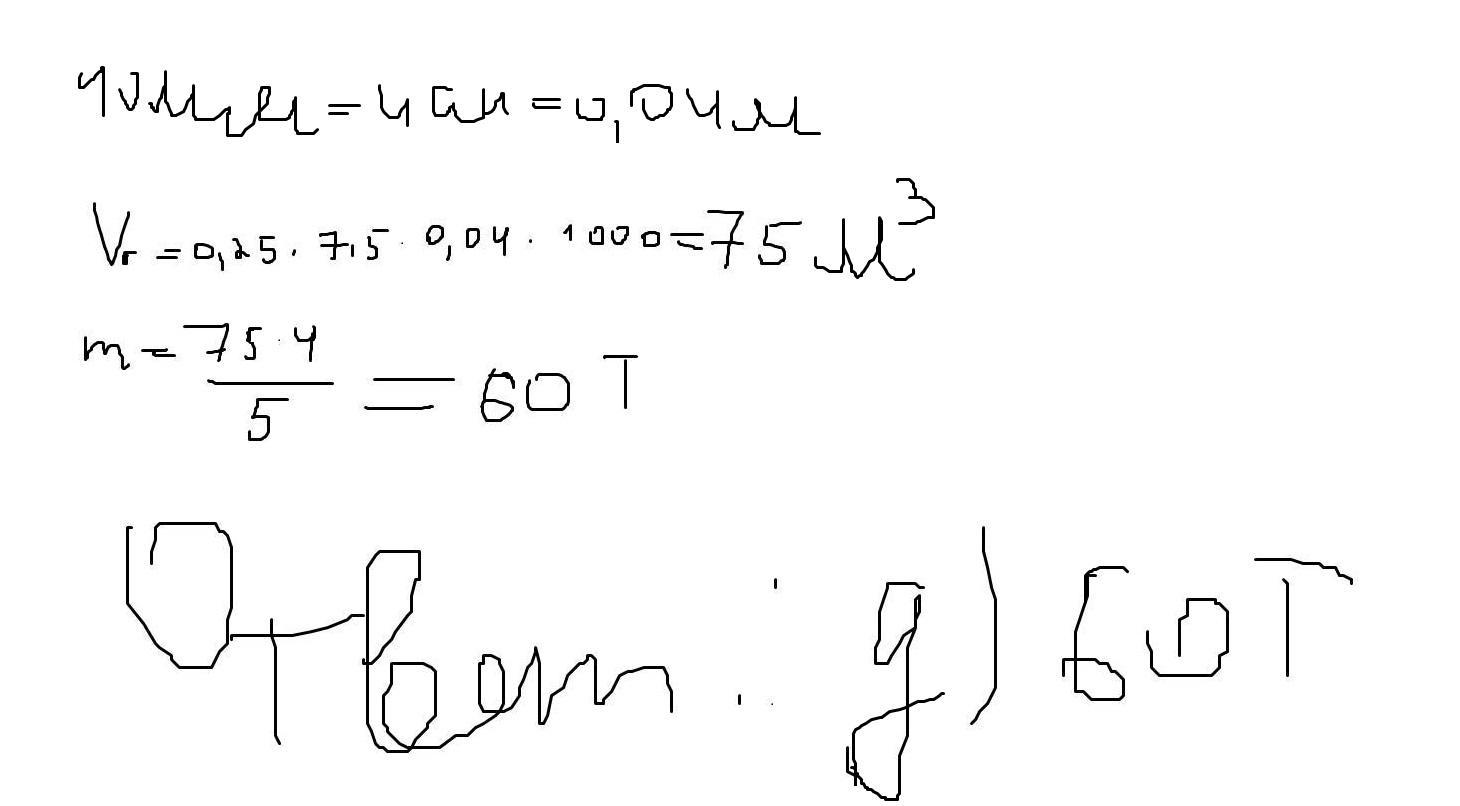 40мм = 4 см = 0,04м
Vг = 0,25 · 7,5 · 0,04 · 1000 = 75 м³
m = 75·4/5 = 60 Т
Ответ: д) 60Т